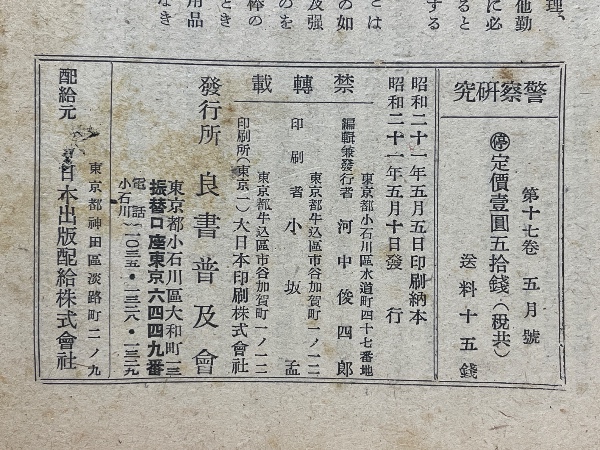 理、
他勤
に必
ると
する
とは
の如
及强
のを
棒の
とき
用品
なき
警察研究
第十七卷 五月號
㊡定價壹圓五拾錢(稅共)
送料十五錢
昭和二十一年五月五日印刷納本
昭和二十一年五月十日發行
禁轉載
東京都小石川區水道町四十七番地
編輯兼發行者 河中俊四郎
東京都牛込區市谷加賀町一ノ一二
印刷者 小坂孟
東京都牛込區市谷加賀町一ノ一二
印刷所(東京一)大日本印刷株式會社
發行所 良書普及會
東京都小石川區大和町一三
振替口座東京六四四九番
電話小石川(一〇三五・一三三八・一三三九
東京都神田區淡路町二ノ九
配給元 日本出版配給株式會社